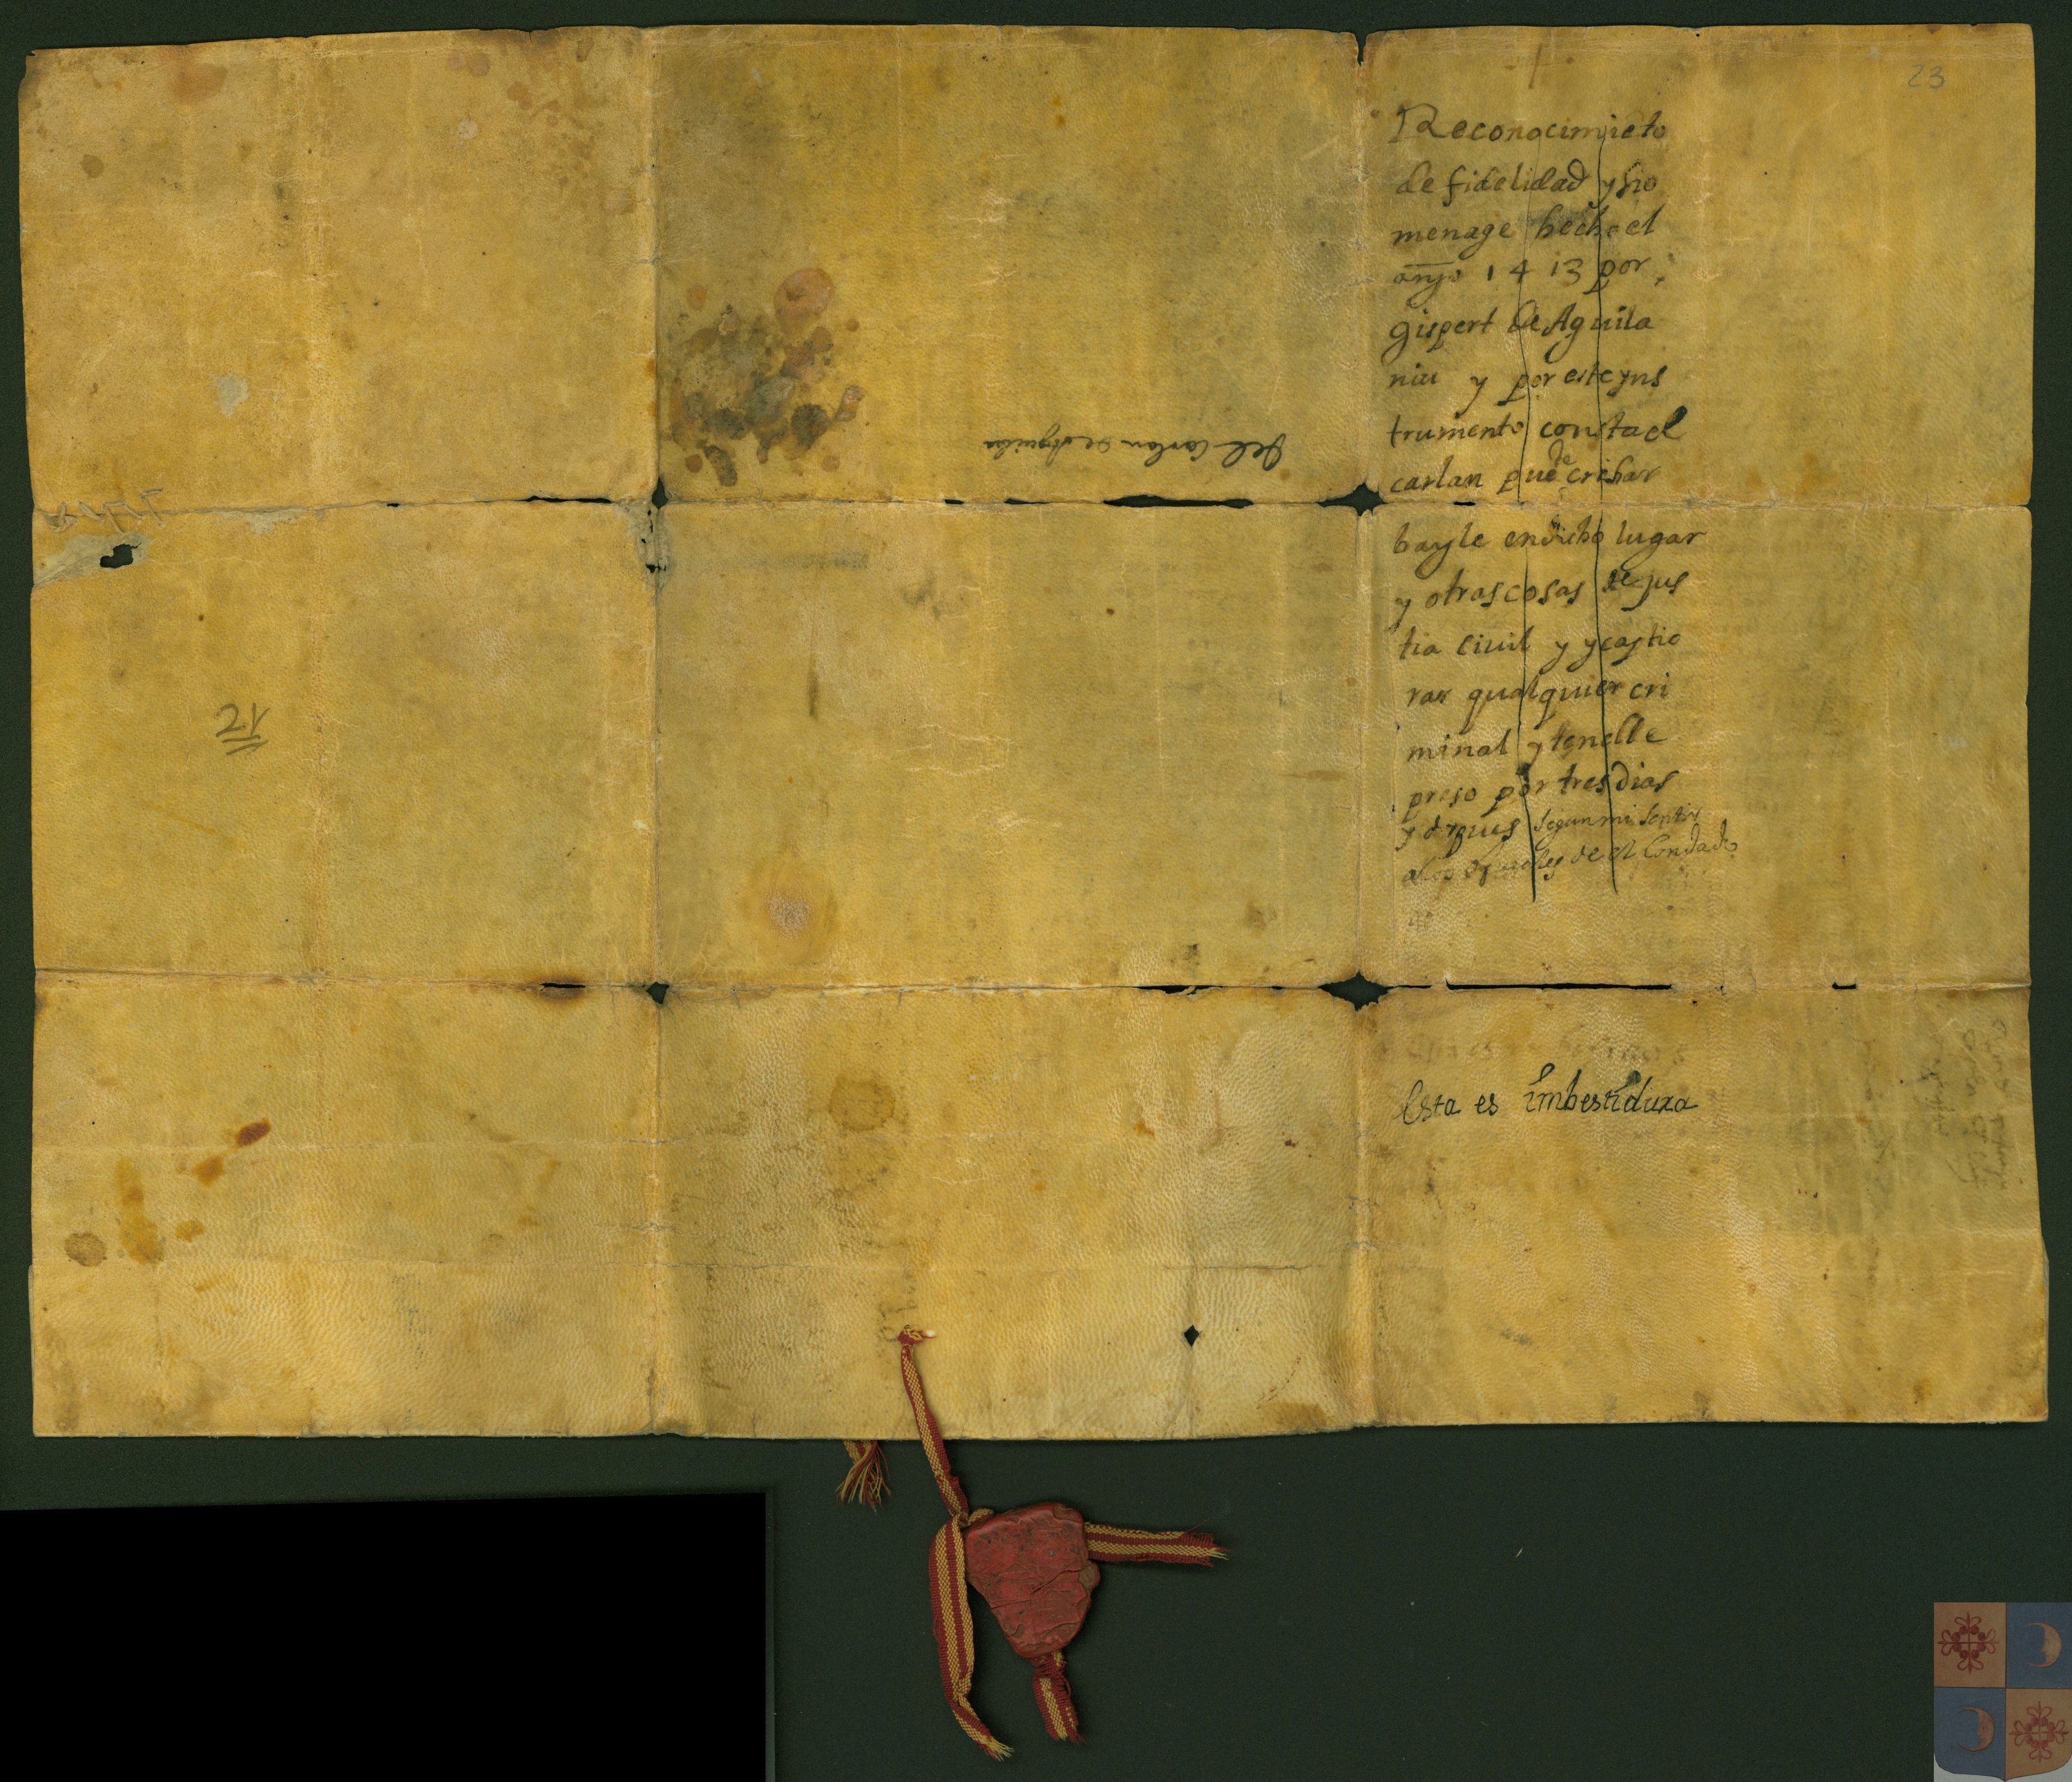 23
Reconocimieto
de fidelidad y ho
menage hecho el
año 1413 por
gispert de Aguila
niu y por este yns
trumento consta el
carlan puede crihar
bayle en dicho lugar
y otras cosas de jus
tia ciuil y
rar qualquier cri
minal y tenelle
preso por tres dias
y dspues segun mi sentir
a los ofisiales de el Condado
Esta es imbestidura
del Carlan de Aguilan
21